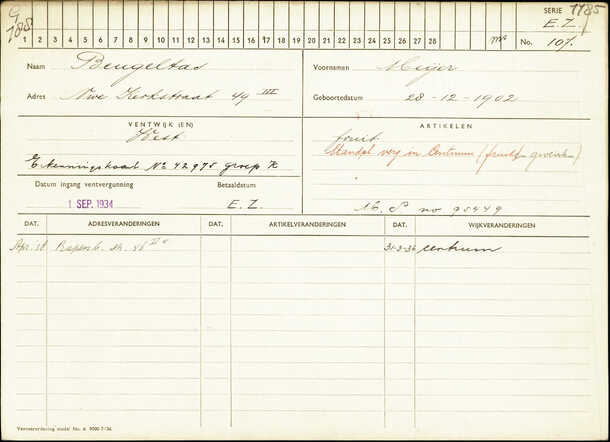 SERIE 1185
E.Z.
1 2 3 4 5 6 7 8 9 10 11 12 13 14 15 16 17 18 19 20 21 22 23 24 25 26 27 28 No. 107.
Naam Beugeltas
Voornamen Meijer
Adres Nwe Kerkstraat 49 III
Geboortedatum 28-12-1902
VENTWIJK (EN)
ARTIKELEN
West
fruit
Standpl verg in Centrum
Erkenningskaart No 42975 groep K
Datum ingang ventvergunning
Betaaldatum
1 SEP. 1934
E.Z.
no 95449
DAT. ADRESVERANDERINGEN DAT. ARTIKELVERANDERINGEN DAT. WIJKVERANDERINGEN
Apr. 38
31-3-36 centrum
Ventverordening model No. 6 9000-7-'36